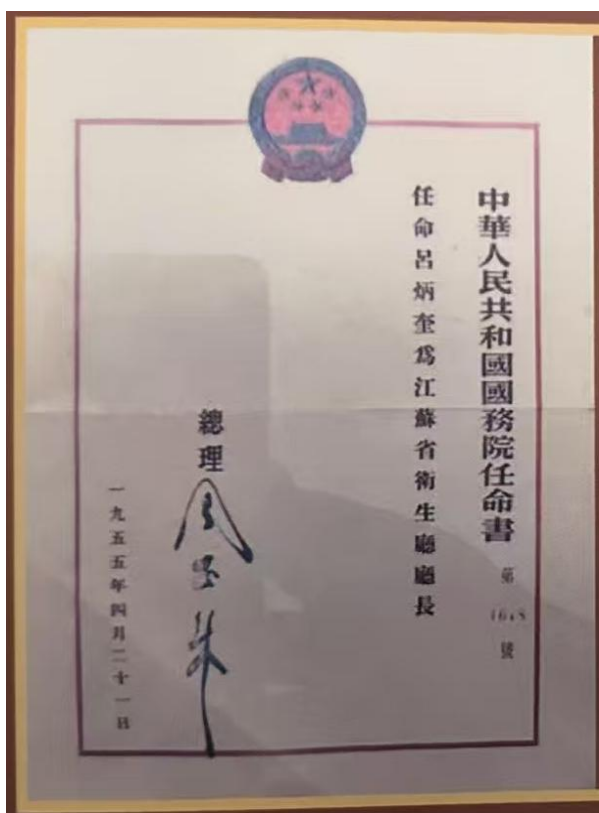 中華人民共和國國務院任命書
第
號
任命呂炳奎爲江蘇省衛生廳廳長
總理
周恩来
一九五五年四月二十一日